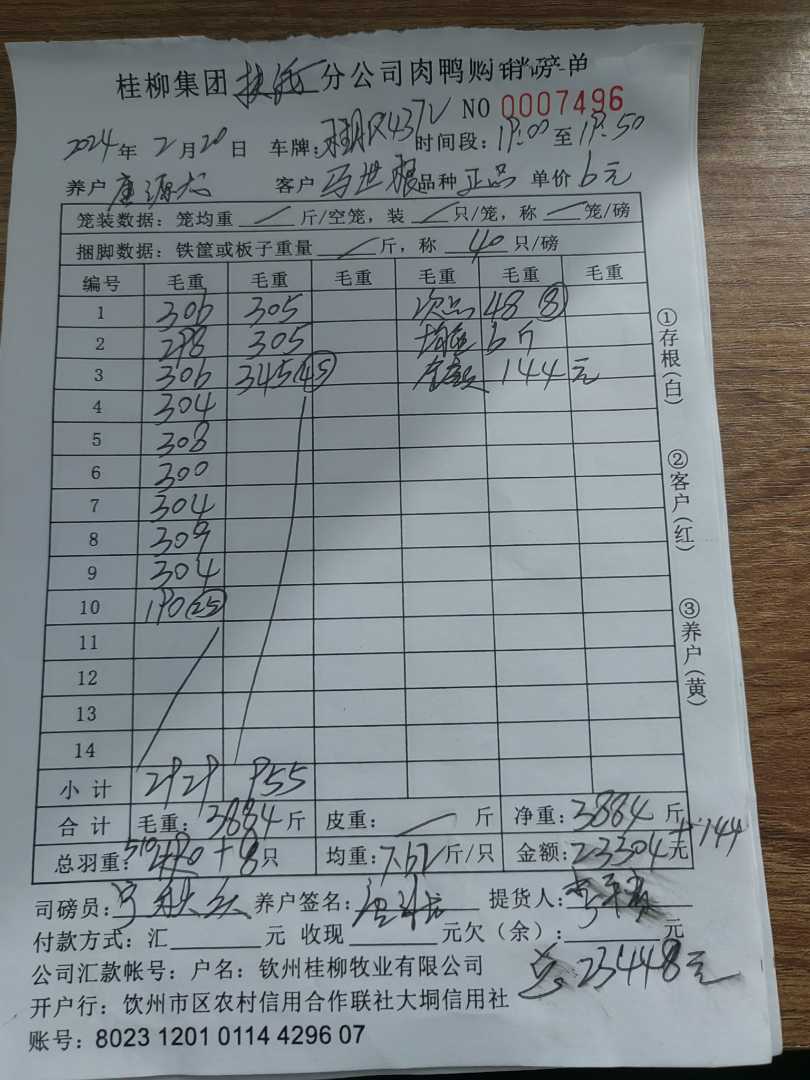 桂柳集团 分公司肉鸭购销磅单
NO 0007496
2024年2月20日 车牌: 时间段:19:00至19:50
养户 唐源 客户 马世 品种 正品 单价 6元
笼装数据:笼均重 / 斤/空笼,装 / 只/笼,称 / 笼/磅
捆脚数据:铁筐或板子重量 / 斤,称 40 只/磅
编号 毛重 毛重 毛重 毛重 毛重 毛重
1 306 305 次品 48 ⑧
2 298 305 均重 6斤
3 306 345 45 金额 144元
4 304
5 308
6 300
7 304
8 309
9 304
10 190 25
11
12
13
14
小计 2929 955
合计 毛重:3884斤 皮重: / 斤 净重:3884斤
+144
总羽重:510 +8只 均重:7.62斤/只 金额:23304元
司磅员: 养户签名: 提货人:
付款方式:汇 元 收现 元欠(余): 元
公司汇款帐号:户名:钦州桂柳牧业有限公司
23448元
开户行:饮州市区农村信用合作联社大垌信用社
账号:8023 1201 0114 4296 07
①存根(白)
②客户(红)
③养户(黄)